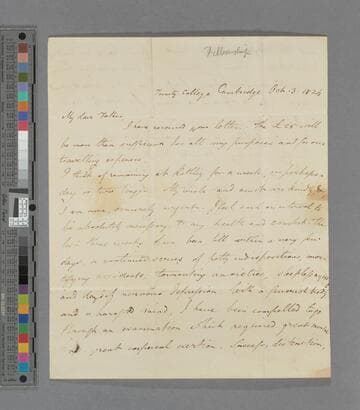 Fellowship
Trinity College Cambridge Oct. 3 1824
My dear Father
I have received your letter. The £20 will
be more than sufficient for all my purposes and for our
travelling expences.
I think of remaining at Rothley for a week, or perhaps a
day or two longer. My uncle and aunt are kind &
I am now urgent. I feel such an interval to
be absolutely necessary to my health and comfort. The
last three weeks have been till within a very few
days a continued series of both indispositions, mor-
tifying accidents, tormenting anxieties, sleepless nights
and days of nervous depression. With a fevered body
and a harassed mind, I have been compelled to go
through an examination which required great mental
and great corporeal exertion. Success, distinction,